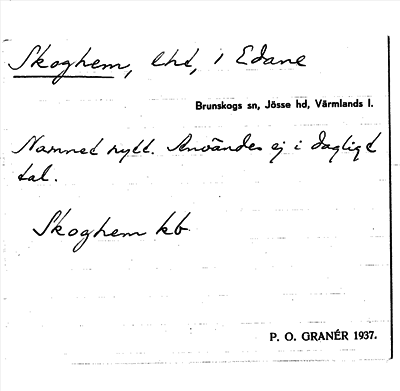 Skoghem, lht, i Edane
Brunskogs sn, Jösse hd, Värmlands l.
Namnet nytt. Användes ej i dagligt
tal.
Skoghem kb
P. O. GRANÉR 1937.